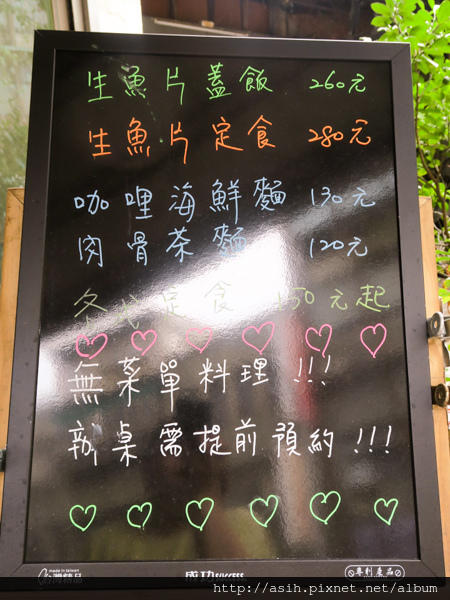 生魚片蓋飯 260元
生魚片定食 280元
咖哩海鮮麵 130元
肉骨茶麵 120元
各式定食 150元起
無菜單料理!!!
辦桌需提前預約!!!
made in taiwan
台灣精品
成功SUCCESS
專利產品
http://asih.pixnet.net/album